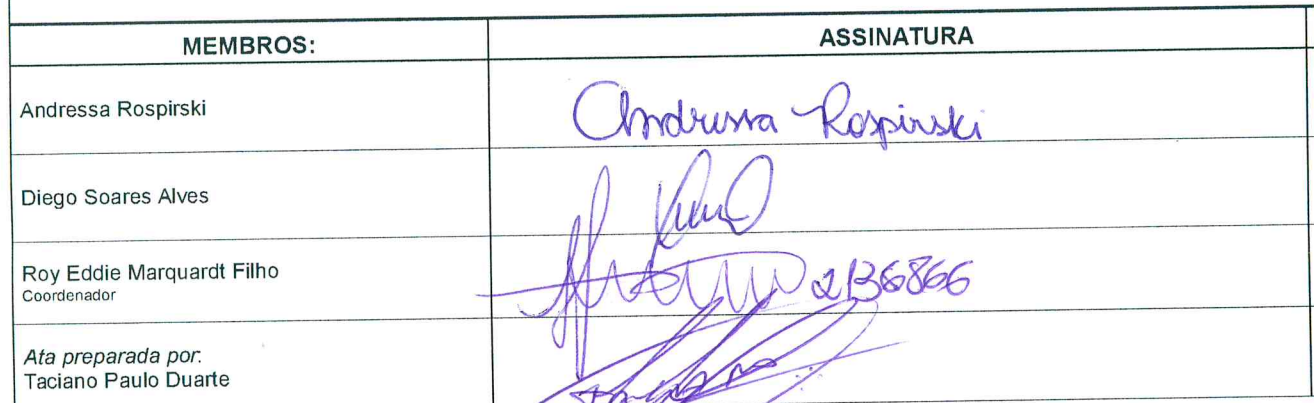 MEMBROS: ASSINATURA
Andressa Rospirski Andressa Rospirski
Diego Soares Alves
Roy Eddie Marquardt Filho
Coordenador
2136866
Ata preparada por:
Taciano Paulo Duarte